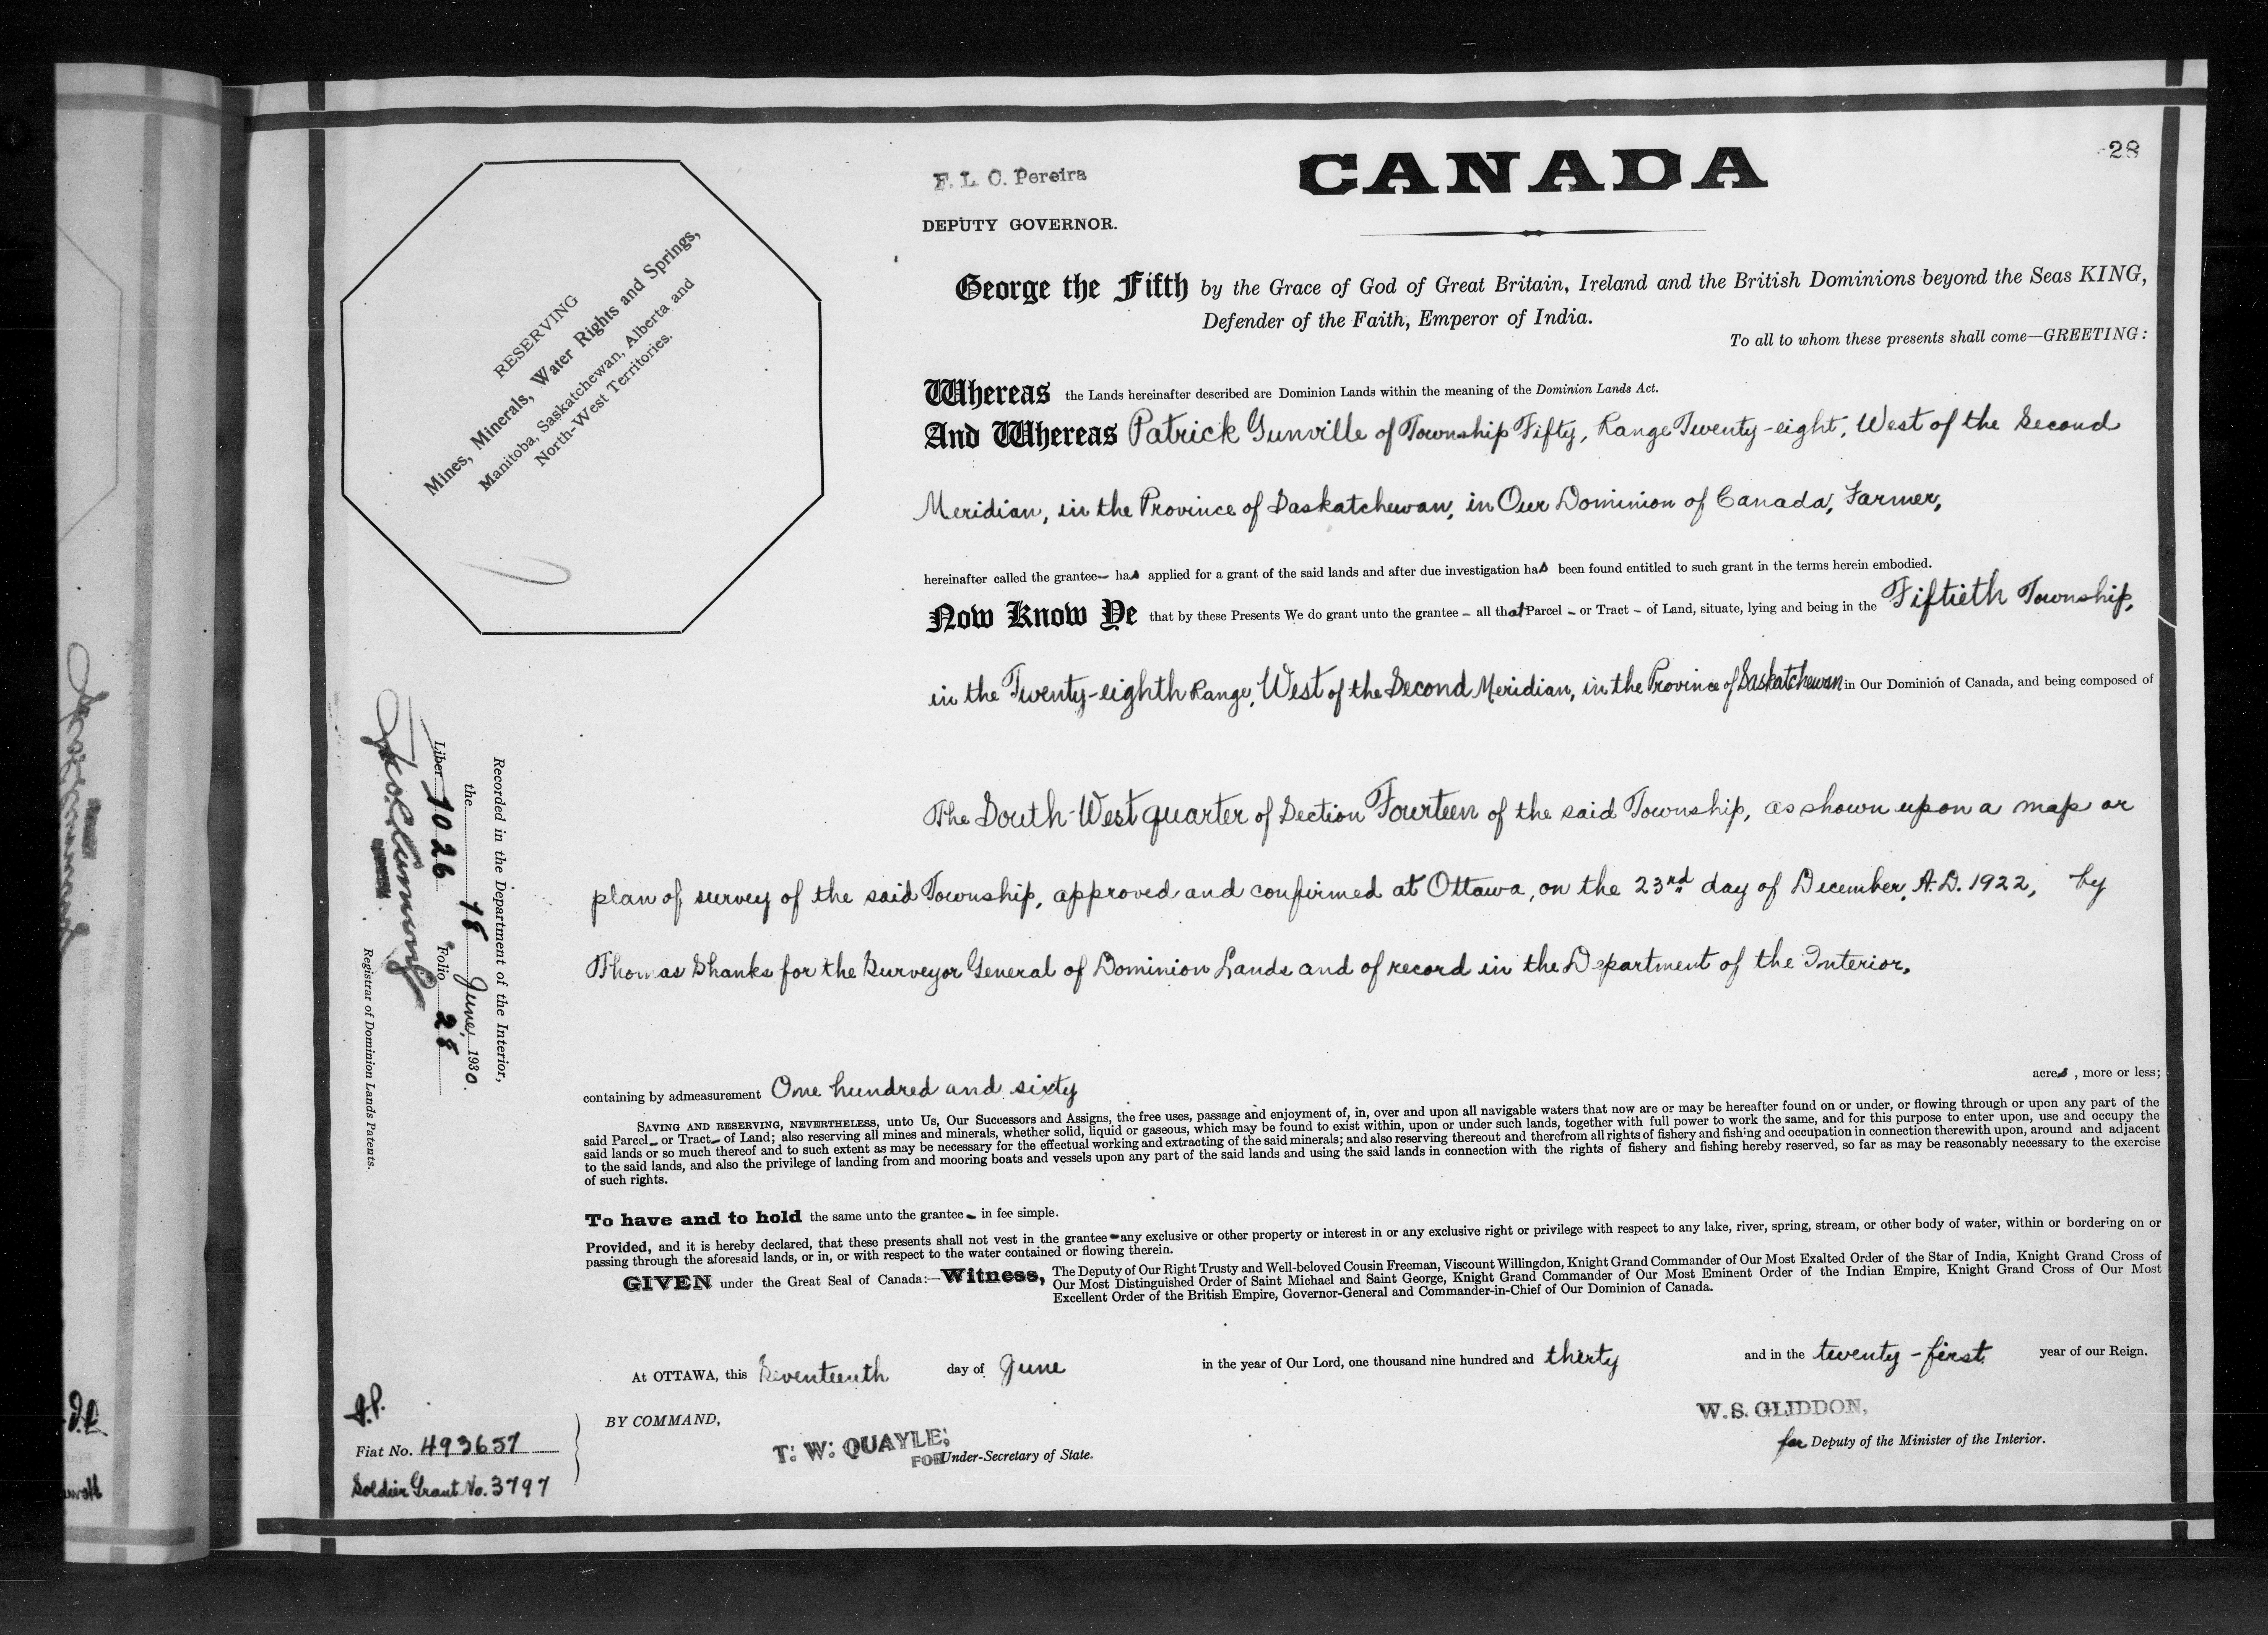 28
F. L. C. Pereira
DEPUTY GOVERNOR.
CANADA
George the Fifth by the Grace of God of Great Britain, Ireland and the British Dominions beyond the Seas KING,
Defender of the Faith, Emperor of India.
To all to whom these presents shall come—GREETING:
RESERVING
Mines, Minerals, Water Rights and Springs,
Manitoba, Saskatchewan, Alberta and
North-West Territories.
Whereas the Lands hereinafter described are Dominion Lands within the meaning of the Dominion Lands Act.
And Whereas Patrick Gunville of Township Fifty, Range Twenty-eight, West of the Second
Meridian, in the Province of Saskatchewan, in Our Dominion of Canada, Farmer,
hereinafter called the grantee— has applied for a grant of the said lands and after due investigation has been found entitled to such grant in the terms herein embodied.
Now Know Ye that by these Presents We do grant unto the grantee – all that Parcel – or Tract – of Land, situate, lying and being in the Fiftieth Township,
in the Twenty-eighth Range, West of the Second Meridian, in the Province of Saskatchewan in Our Dominion of Canada, and being composed of
The South-West quarter of Section Fourteen of the said Township, as shown upon a map or
plan of survey of the said Township, approved and confirmed at Ottawa, on the 23rd day of December, A.D. 1922, by
Thomas Shanks for the Surveyor General of Dominion Lands and of record in the Department of the Interior,
Recorded in the Department of the Interior,
the 18 June, 1930.
Liber 1026 Folio 28
Registrar of Dominion Lands Patents.
containing by admeasurement One hundred and sixty acres, more or less;
SAVING AND RESERVING, NEVERTHELESS, unto Us, Our Successors and Assigns, the free uses, passage and enjoyment of, in, over and upon all navigable waters that now are or may be hereafter found on or under, or flowing through or upon any part of the
said Parcel – or Tract – of Land; also reserving all mines and minerals, whether solid, liquid or gaseous, which may be found to exist within, upon or under such lands, together with full power to work the same, and for this purpose to enter upon, use and occupy the
said lands or so much thereof and to such extent as may be necessary for the effectual working and extracting of the said minerals; and also reserving thereout and therefrom all rights of fishery and fishing and occupation in connection therewith upon, around and adjacent
to the said lands, and also the privilege of landing from and mooring boats and vessels upon any part of the said lands and using the said lands in connection with the rights of fishery and fishing hereby reserved, so far as may be reasonably necessary to the exercise
of such rights.
To have and to hold the same unto the grantee – in fee simple.
Provided, and it is hereby declared, that these presents shall not vest in the grantee – any exclusive or other property or interest in or any exclusive right or privilege with respect to any lake, river, spring, stream, or other body of water, within or bordering on or
passing through the aforesaid lands, or in, or with respect to the water contained or flowing therein.
GIVEN under the Great Seal of Canada:—Witness, The Deputy of Our Right Trusty and Well-beloved Cousin Freeman, Viscount Willingdon, Knight Grand Commander of Our Most Exalted Order of the Star of India, Knight Grand Cross of
Our Most Distinguished Order of Saint Michael and Saint George, Knight Grand Commander of Our Most Eminent Order of the Indian Empire, Knight Grand Cross of Our Most
Excellent Order of the British Empire, Governor-General and Commander-in-Chief of Our Dominion of Canada.
At OTTAWA, this Seventeenth day of June in the year of Our Lord, one thousand nine hundred and thirty and in the twenty-first year of our Reign.
BY COMMAND,
T. W. QUAYLE,
FOR Under-Secretary of State.
W. S. GLIDDON,
for Deputy of the Minister of the Interior.
Fiat No. 493657
Soldier Grant No. 3797